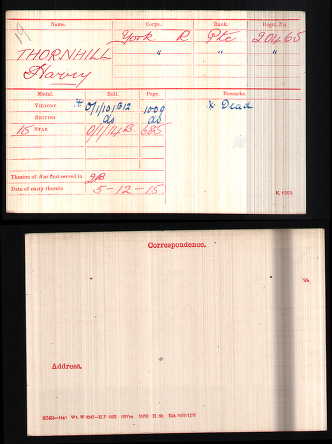 Name. Corps. Rank. Regtl. No.
THORNHILL York R Pte 20465
Harry " " "
Medal. Roll. Page. Remarks.
Victory O/1/101B12 1009 x Dead
British do do
15 Star O/1/14B 685
Theatre of War first served in
Date of entry therein 5-12-15
K. 1380.
Correspondence.
Address.